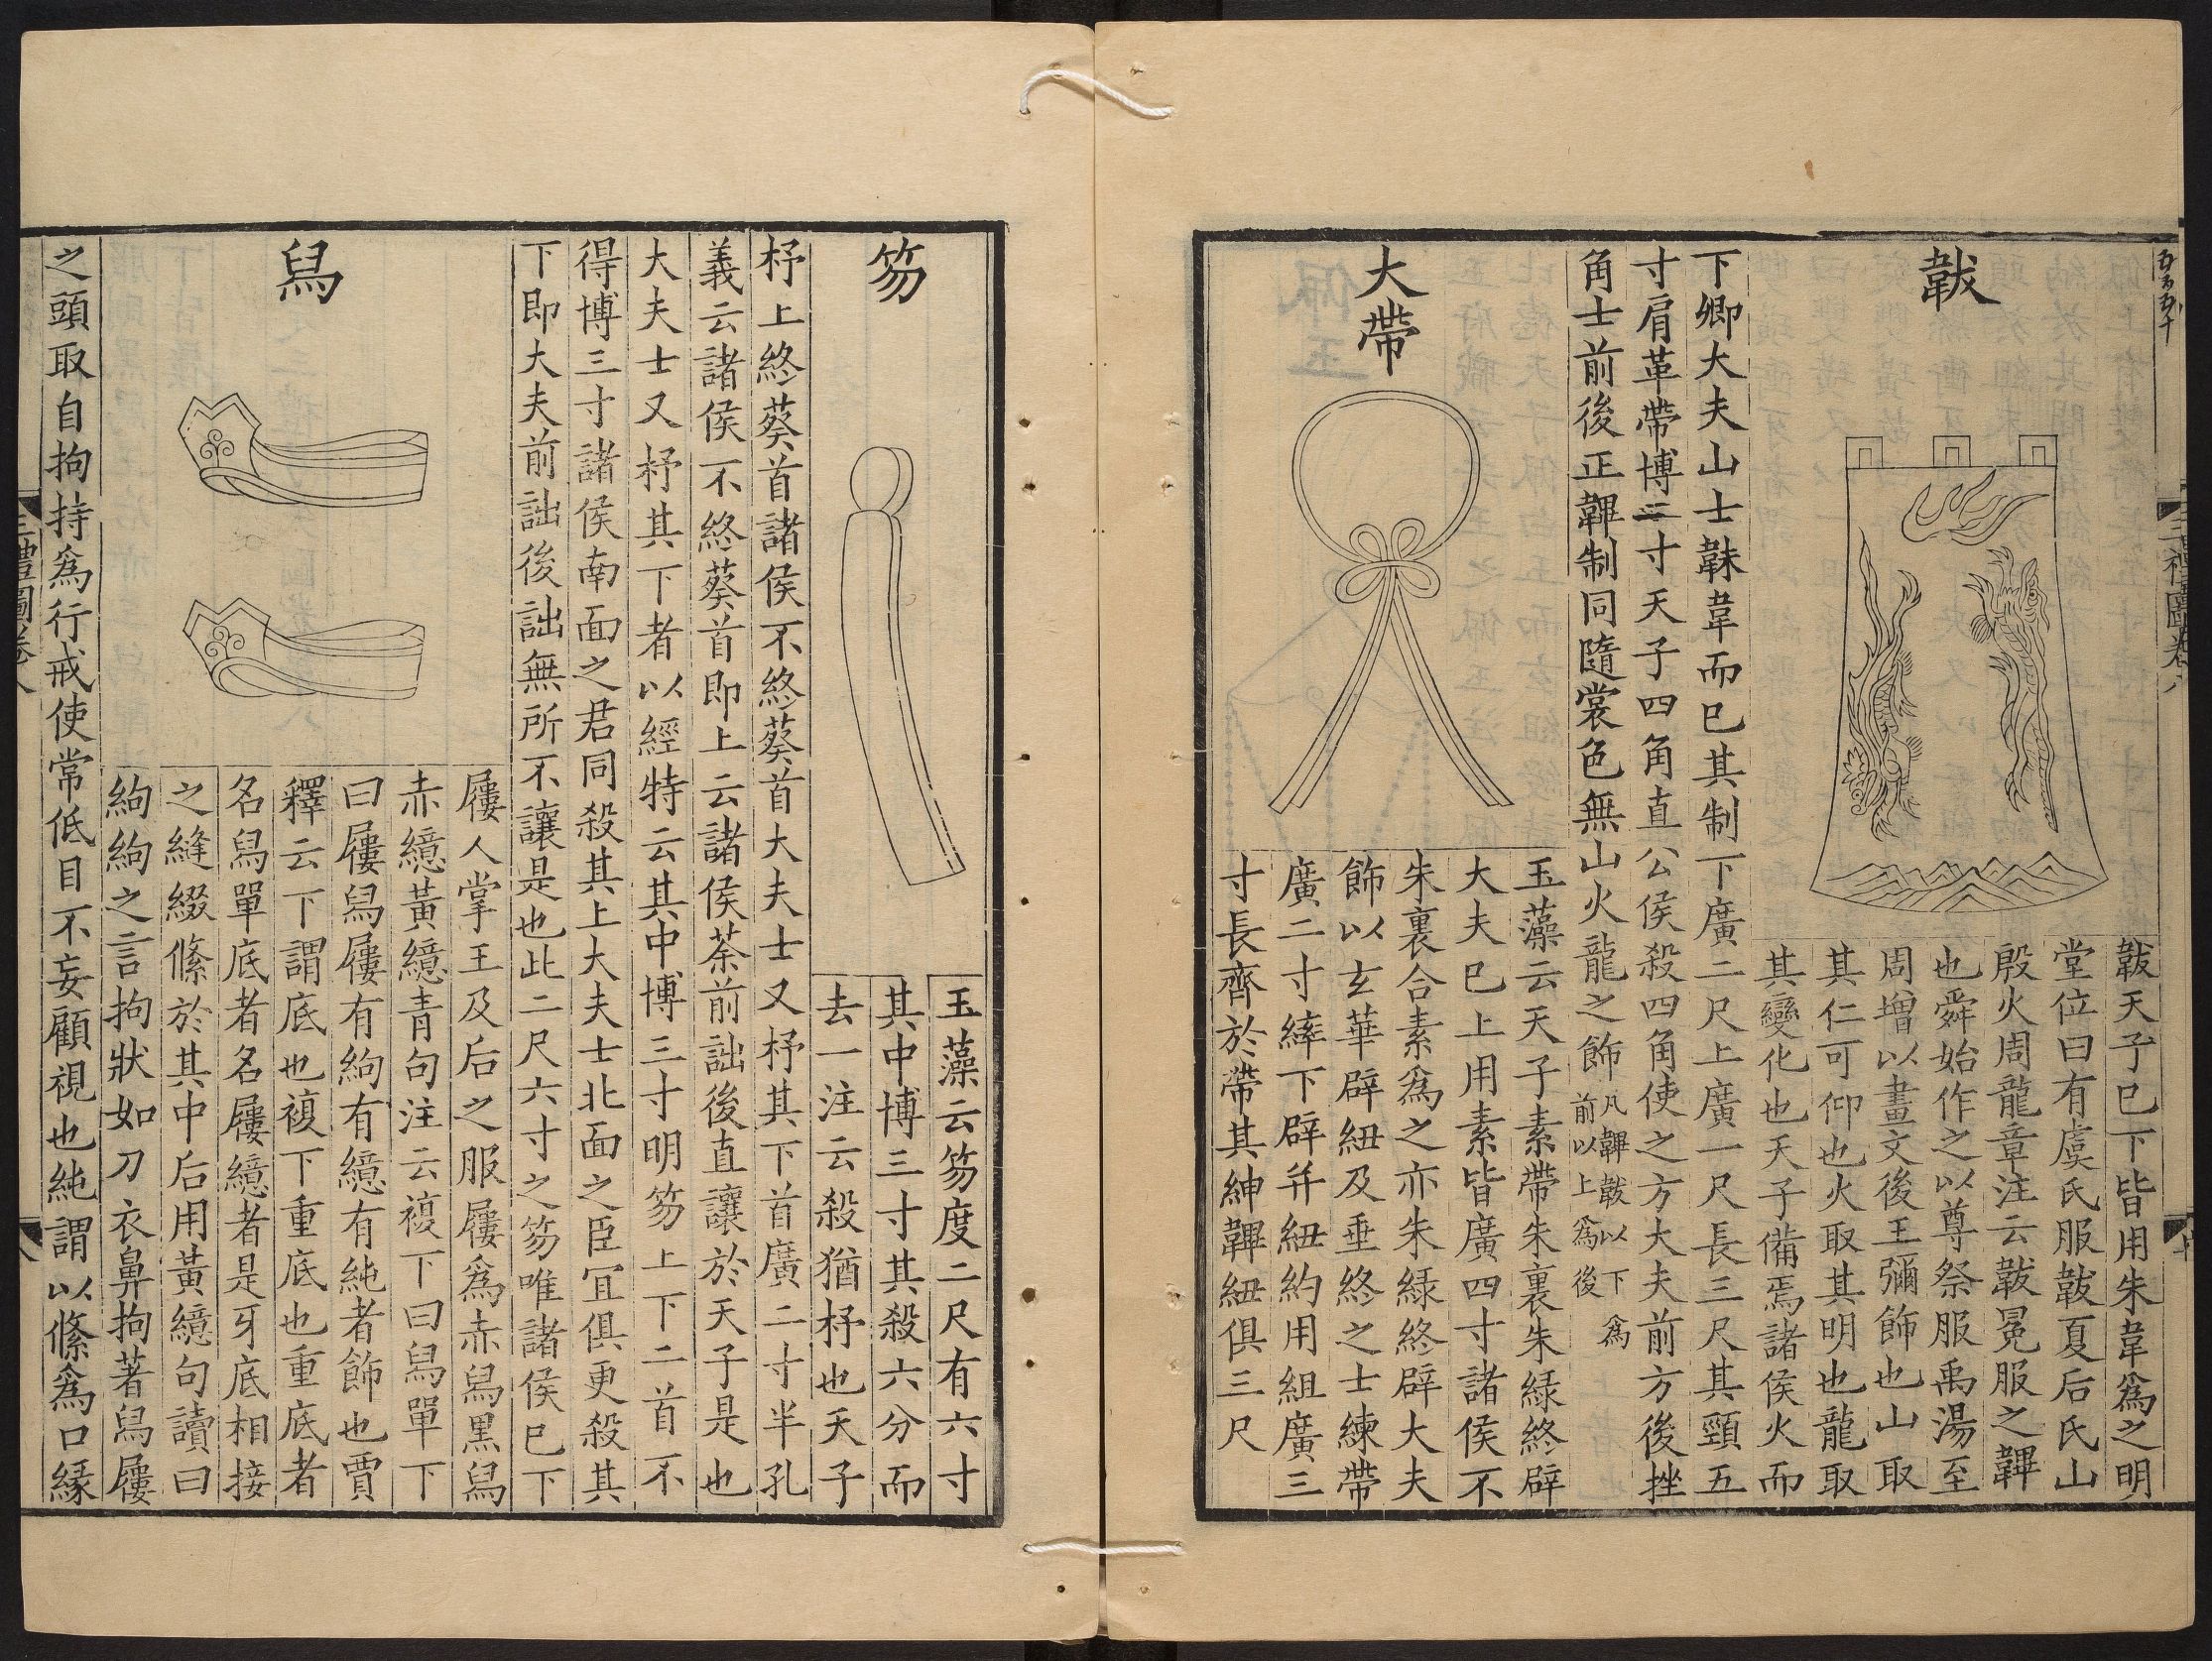 韍
韍天子巳下皆用朱韋爲之明
堂位曰有虞氏服韍夏后氏山
殷火周龍章注云韍冕服之韠
也舜始作之以尊祭服禹湯至
周增以畫文後王彌飾也山取
其仁可仰也火取其明也龍取
其變化也天子備焉諸侯火而
下卿大夫山士韎韋而巳其制下廣二尺上廣一尺長三尺其頸五
寸肩革帶博二寸天子四角直公侯殺四角使之方大夫前方後挫
角士前後正韠制同隨裳色無山火龍之飾凡韠韍以下爲
前以上爲後
大帶
玉藻云天子素帶朱裏朱綠終辟
大夫巳上用素皆廣四寸諸侯不
朱裏合素爲之亦朱綠終辟大夫
飾以玄華辟紐及垂終之士練帶
廣二寸繂下辟并紐約用組廣三
寸長齊於帶其紳韠紐俱三尺
笏
玉藻云笏度二尺有六寸
其中博三寸其殺六分而
去一注云殺猶杼也天子
杼上終葵首諸侯不終葵首大夫士又杼其下首廣二寸半孔
義云諸侯不終葵首即上云諸侯荼前詘後直讓於天子是也
大夫士又杼其下者以經特云其中博三寸明笏上下二首不
得博三寸諸侯南面之君同殺其上大夫士北面之臣冝俱更殺其
下即大夫前詘後詘無所不讓是也此二尺六寸之笏唯諸侯巳下
舄
屨人掌王及后之服屨爲赤舄黑舄
赤繶黃繶青句注云複下曰舄單下
曰屨舄屨有絇有繶有純者飾也賈
釋云下謂底也複下重底也重底者
名舄單底者名屨繶者是牙底相接
之縫綴絛於其中后用黃繶句讀曰
絇絇之言拘狀如刀衣鼻拘著舄屨
之頭取自拘持爲行戒使常低目不妄顧視也純謂以絛爲口緣
三禮圖卷八